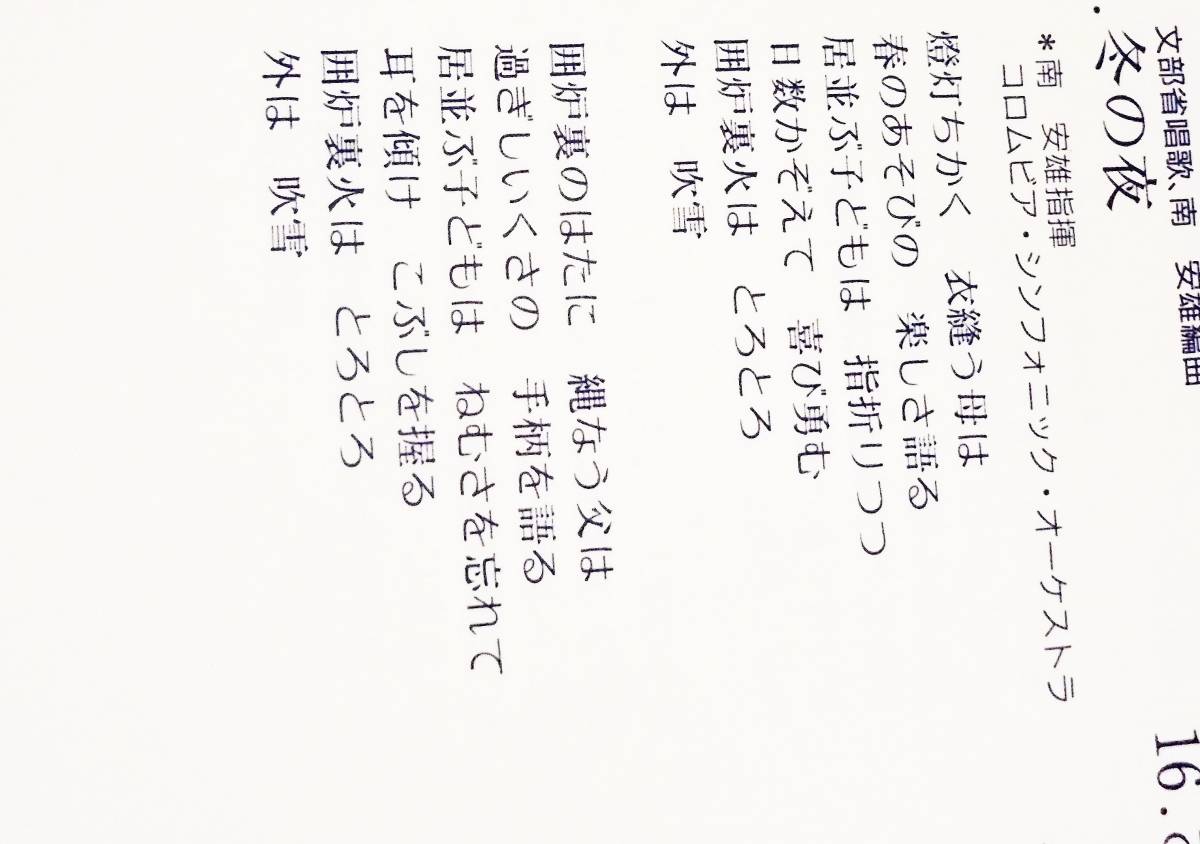 冬の夜
文部省唱歌、南 安雄編曲
*南 安雄指揮
コロムビア・シンフォニック・オーケストラ
燈灯ちかく 衣縫う母は
春のあそびの 楽しさ語る
居並ぶ子どもは 指折りつつ
日数かぞえて 喜び勇む
囲炉裏火は とろとろ
外は 吹雪
囲炉裏のはたに 縄なう父は
過ぎしいくさの 手柄を語る
居並ぶ子どもは ねむさを忘れて
耳を傾け こぶしを握る
囲炉裏火は とろとろ
外は 吹雪
16.